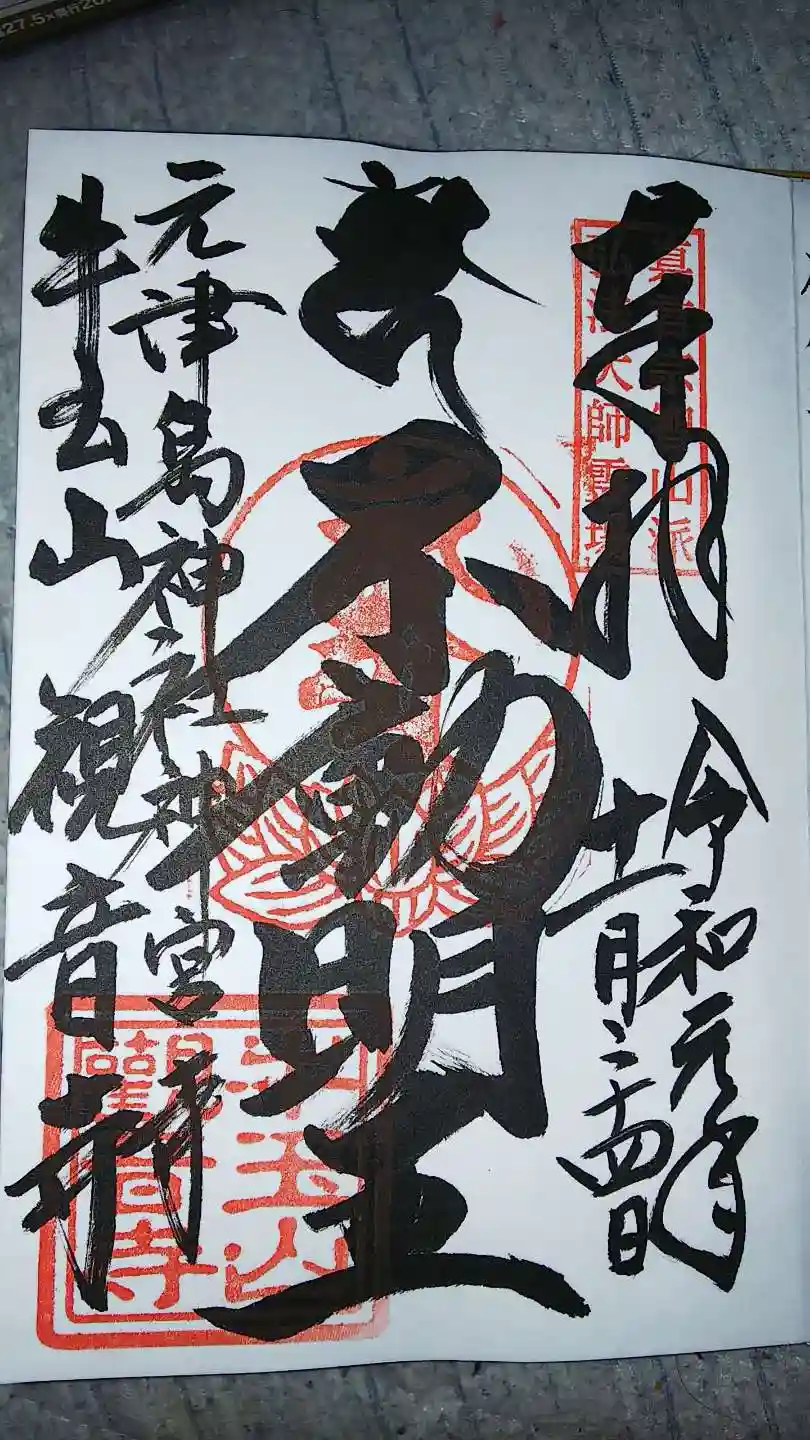 奉拝
令和元年
十一月二十四日
不動明王
元津島神社神宮寺
牛玉山
観音寺
真言宗智山派
弘法大師霊場
牛玉山
観音寺
27.5×奥行20.